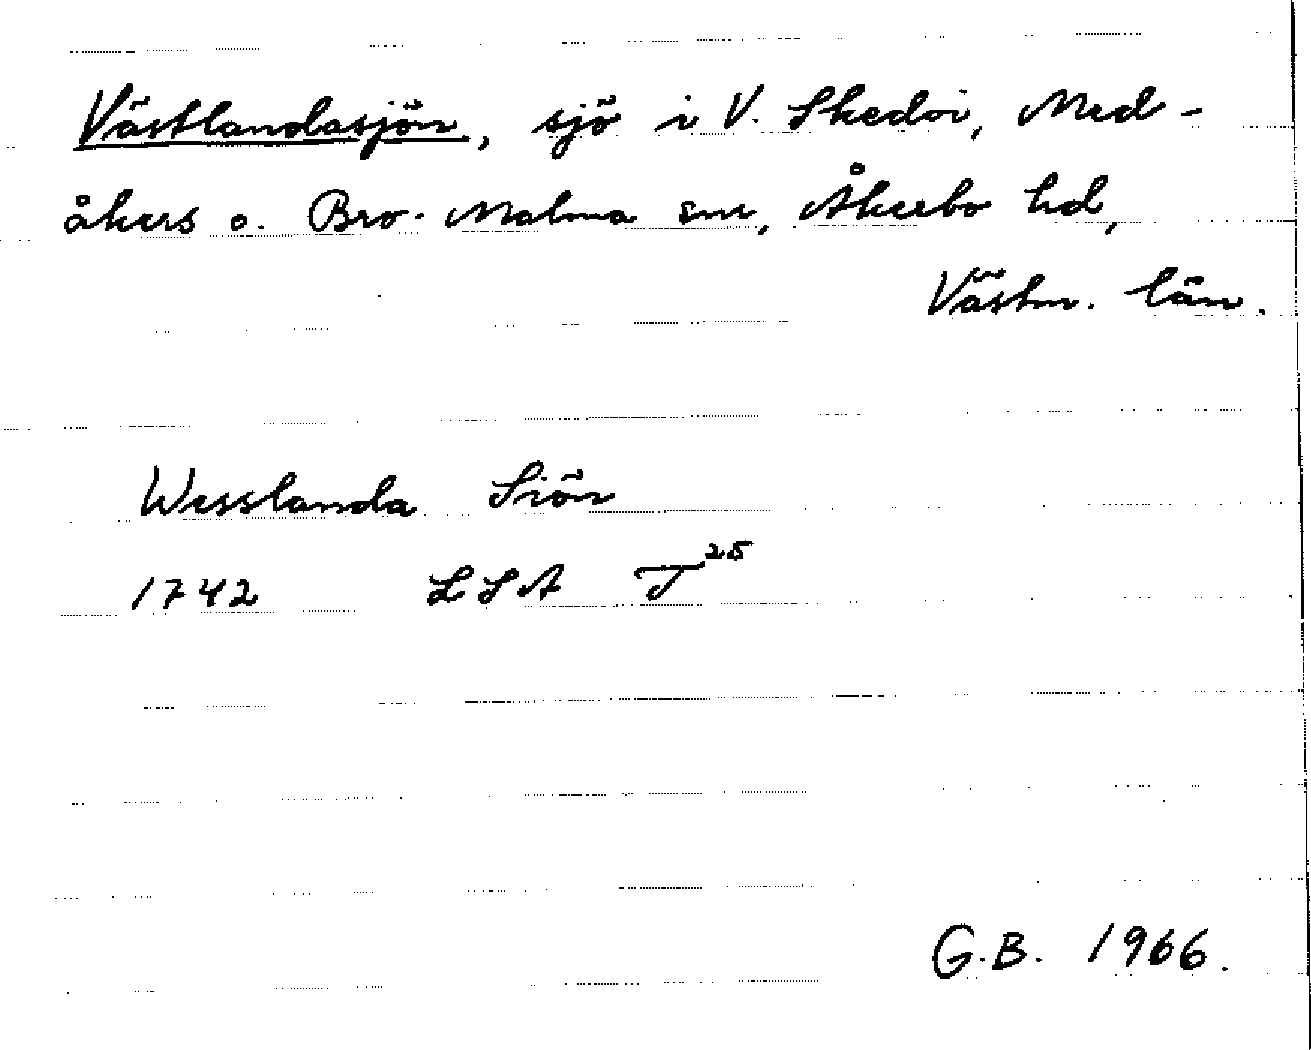 Västlandasjön, sjö i V. Skedvi, Med-
åkers o. Bro-Malma snr, Åkerbo hd,
Västm. län.
Wesslanda Siön
1742 LSA T 25
G.B. 1966.